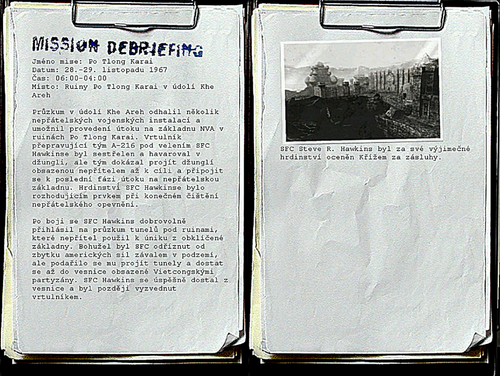 MISSION DEBRIEFING
Jméno mise: Po Tlong Karai
Datum: 28.-29. listopadu 1967
Čas: 06:00-04:00
Místo: Ruiny Po Tlong Karai v údolí Khe
Areh
Průzkum v údolí Khe Areh odhalil několik
nepřátelských vojenských instalací a
umožnil provedení útoku na základnu NVA v
ruinách Po Tlong Karai. Vrtulník
přepravující tým A-216 pod velením SFC
Hawkinse byl sestřelen a havaroval v
džungli, ale tým dokázal projít džunglí
obsazenou nepřítelem až k cíli a připojit
se k poslední fázi útoku na nepřátelskou
základnu. Hrdinství SFC Hawkinse bylo
rozhodujícím prvkem při konečném čištění
nepřátelského opevnění.
Po boji se SFC Hawkins dobrovolně
přihlásil na průzkum tunelů pod ruinami,
které nepřítel použil k úniku z obklíčené
základny. Bohužel byl SFC odříznut od
zbytku amerických sil závalem v podzemí,
ale podařilo se mu projít tunely a dostat
se až do vesnice obsazené Vietcongskými
partyzány. SFC Hawkins se úspěšně dostal z
vesnice a byl později vyzvednut
vrtulníkem.
SFC Steve R. Hawkins byl za své výjimečné
hrdinství oceněn Křížem za zásluhy.